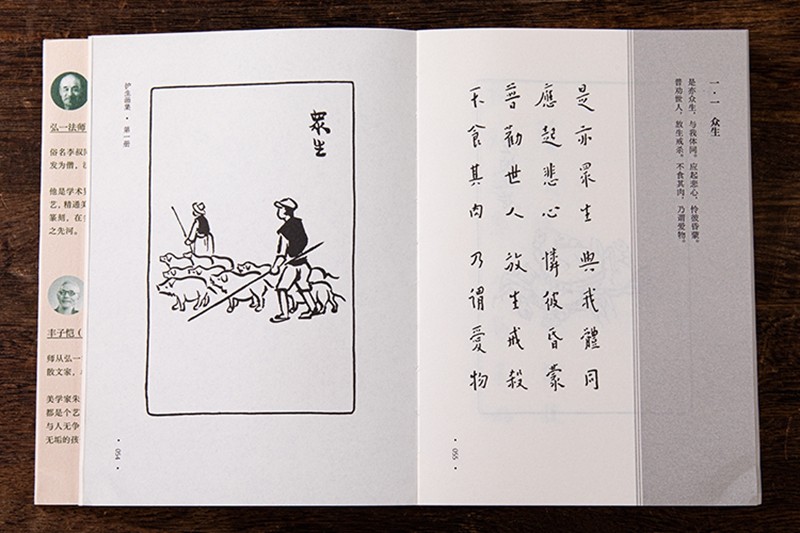 弘一法师
俗名李叔
发为僧，
他是学术
艺，精通美
篆刻，在
之先河。
丰子恺（
师从弘一
散文家，
美学家朱
都是个艺
与人无争
无垢的孩
护生画集 · 第一册
眾生
· 054 ·
一·一 众生
是亦众生，与我体同。应起悲心，怜彼昏蒙。
普劝世人，放生戒杀。不食其肉，乃谓爱物。
是亦眾生 與我體同
應起悲心 憐彼昏蒙
普勸世人 放生戒殺
不食其肉 乃謂愛物
· 055 ·